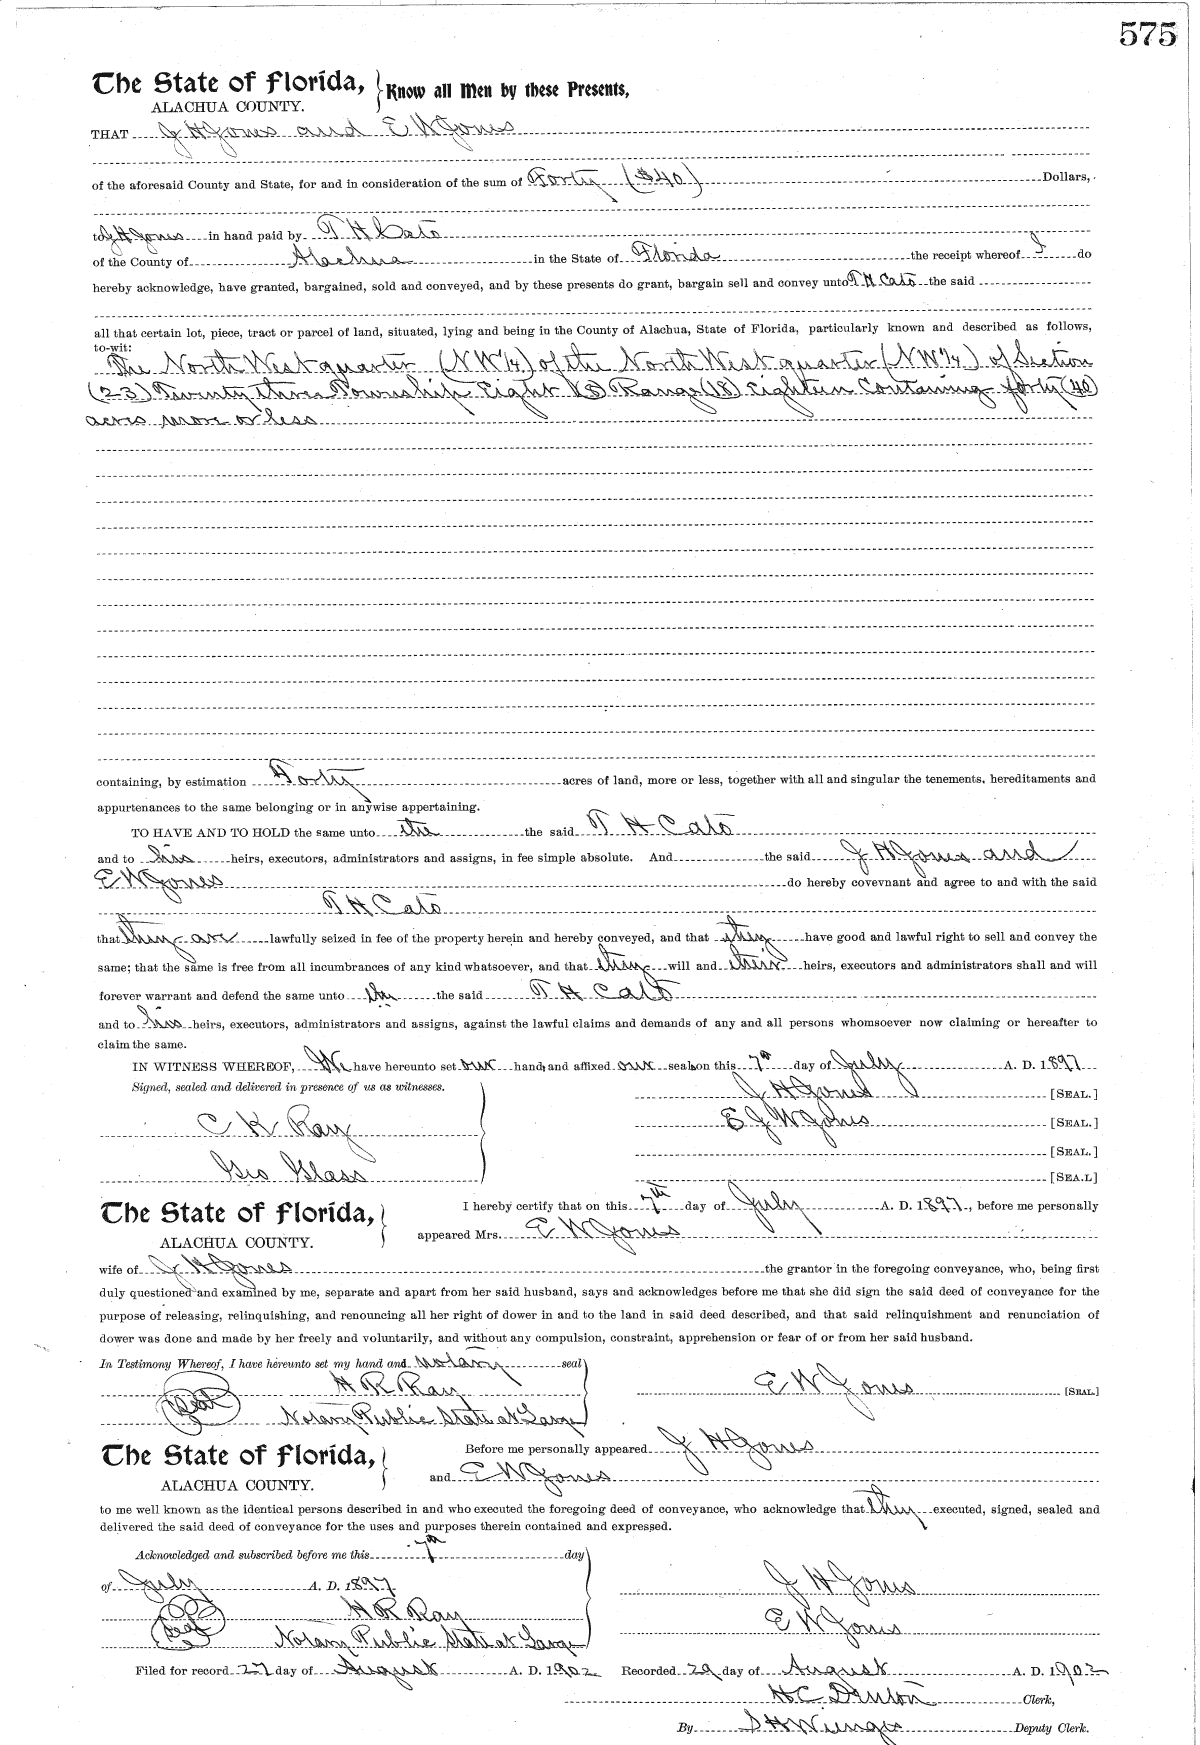 575
The State of Florida, Know all Men by these Presents,
ALACHUA COUNTY.
THAT J H Jones and E W Jones
of the aforesaid County and State, for and in consideration of the sum of Forty ($40) Dollars,
to J H Jones in hand paid by T H Cato
of the County of Alachua in the State of Florida the receipt whereof I do
hereby acknowledge, have granted, bargained, sold and conveyed, and by these presents do grant, bargain sell and convey unto T H Cato the said
all that certain lot, piece, tract or parcel of land, situated, lying and being in the County of Alachua, State of Florida, particularly known and described as follows,
to-wit:
The North West quarter (NW 1/4) of the North West quarter (NW 1/4) of Section
(23) Twenty three Township Eight (8) Range (18) Eighteen Containing forty (40)
acres more or less
containing, by estimation Forty acres of land, more or less, together with all and singular the tenements, hereditaments and
appurtenances to the same belonging or in anywise appertaining.
TO HAVE AND TO HOLD the same unto the the said T H Cato
and to his heirs, executors, administrators and assigns, in fee simple absolute. And the said J H Jones and
E W Jones do hereby covevnant and agree to and with the said
T H Cato
that they are lawfully seized in fee of the property herein and hereby conveyed, and that they have good and lawful right to sell and convey the
same; that the same is free from all incumbrances of any kind whatsoever, and that they will and their heirs, executors and administrators shall and will
forever warrant and defend the same unto the the said T H Cato
and to his heirs, executors, administrators and assigns, against the lawful claims and demands of any and all persons whomsoever now claiming or hereafter to
claim the same.
IN WITNESS WHEREOF, We have hereunto set our hands and affixed our seals on this 7th day of July A. D. 1897
Signed, sealed and delivered in presence of us as witnesses. J H Jones [SEAL.]
C K Ray E J W Jones [SEAL.]
[SEAL.]
Geo Glass [SEA.L]
The State of Florida, I hereby certify that on this 7th day of July A. D. 1897, before me personally
ALACHUA COUNTY. appeared Mrs. E W Jones
wife of J H Jones the grantor in the foregoing conveyance, who, being first
duly questioned and examined by me, separate and apart from her said husband, says and acknowledges before me that she did sign the said deed of conveyance for the
purpose of releasing, relinquishing, and renouncing all her right of dower in and to the land in said deed described, and that said relinquishment and renunciation of
dower was done and made by her freely and voluntarily, and without any compulsion, constraint, apprehension or fear of or from her said husband.
In Testimony Whereof, I have hereunto set my hand and notary seal
H R Ray E W Jones [SEAL.]
Seal Notary Public State at Large
The State of Florida, Before me personally appeared J H Jones
ALACHUA COUNTY. and E W Jones
to me well known as the identical persons described in and who executed the foregoing deed of conveyance, who acknowledge that they executed, signed, sealed and
delivered the said deed of conveyance for the uses and purposes therein contained and expressed.
Acknowledged and subscribed before me this 7th day
of July A. D. 1897 J H Jones
H R Ray E W Jones
Seal Notary Public State at Large
Filed for record 27 day of August A. D. 1902 Recorded 29 day of August A. D. 1902
H C Denton Clerk,
By S H Wienges Deputy Clerk.